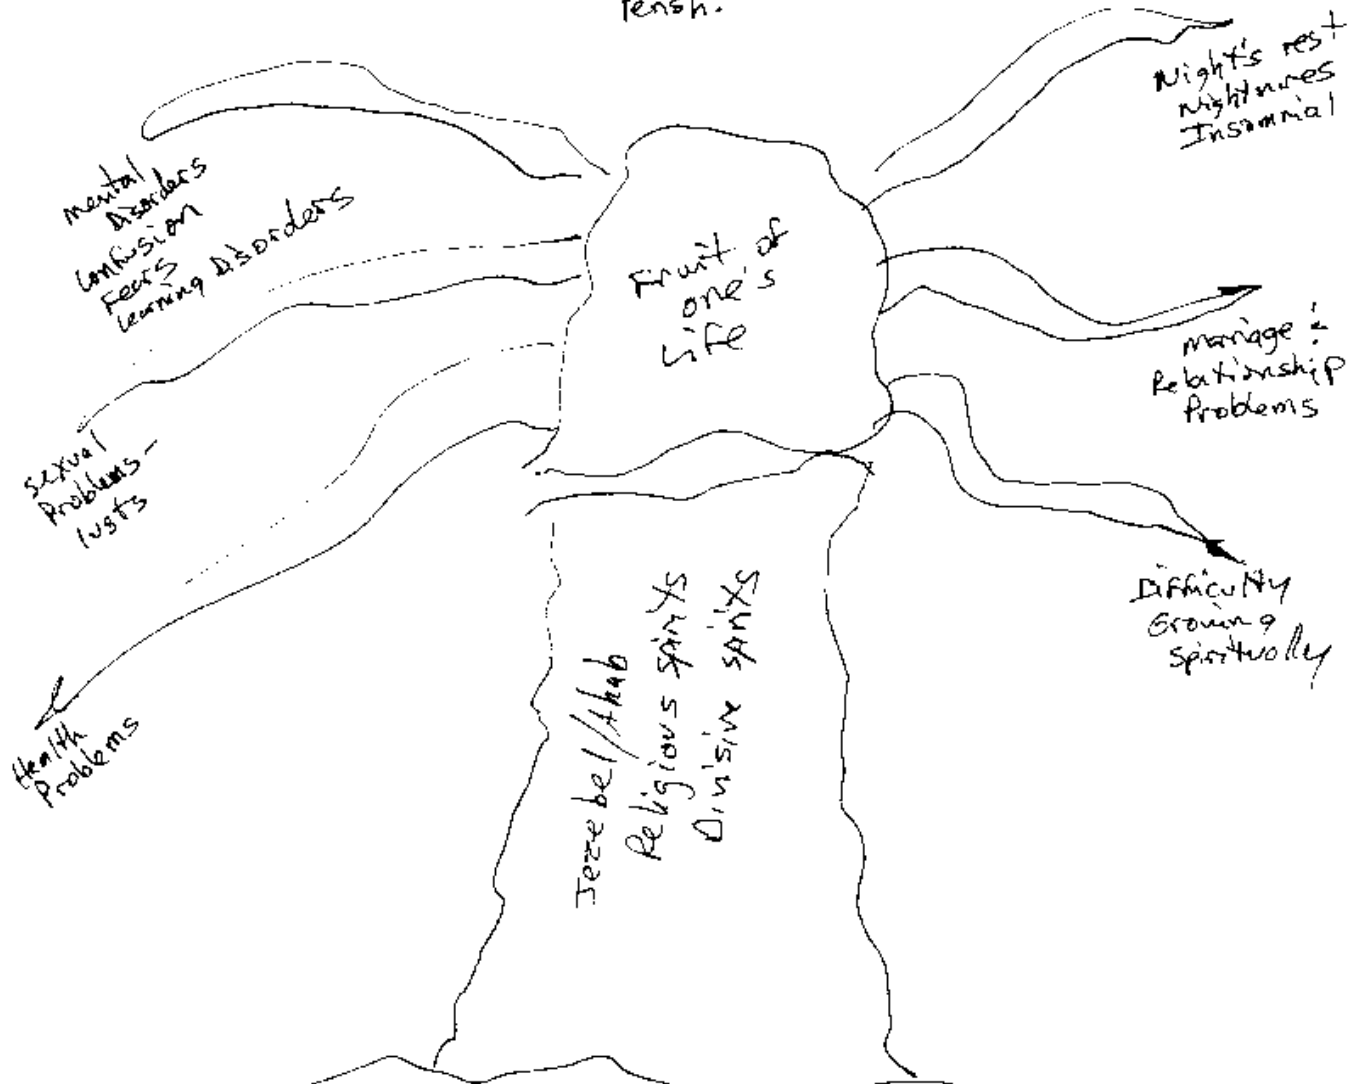 Night's rest
Nightmares
Insomnial
mental
Disorders
confusion
Fears
Learning Disorders
Fruit of
one's
Life
marriage &
Relationship
Problems
sexual
Problems-
lusts
Difficulty
Growing
Spiritually
Health
Problems
Jezebel/Ahab
Religious spirits
Divisive spirits